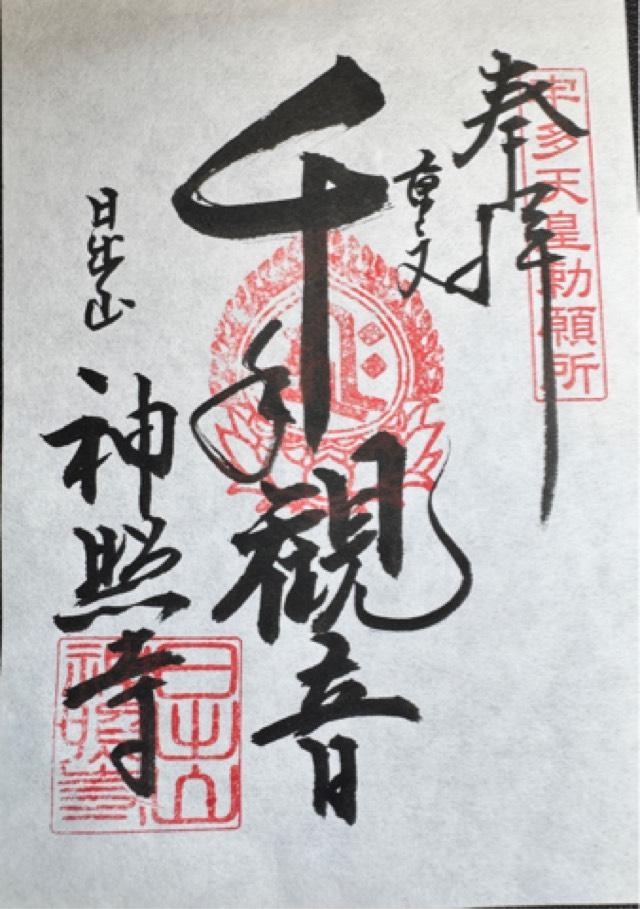 奉拝
宇多天皇勅願所
重文
千手観音
日出山
神照寺
日出山
神照寺